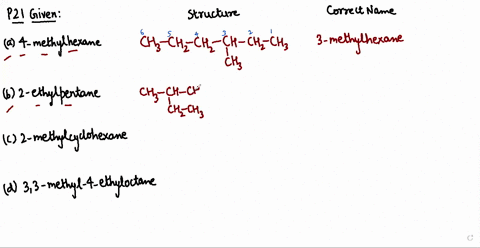 P21 Given: Structure Correct Name
(a) 4-methylhexane 6CH3-5CH2-4CH2-3CH-2CH2-1CH3 3-methylhexane
CH3
(b) 2-ethylpentane CH3-CH-CH
CH2-CH3
(c) 2-methylcyclohexane
(d) 3,3-methyl-4-ethyloctane